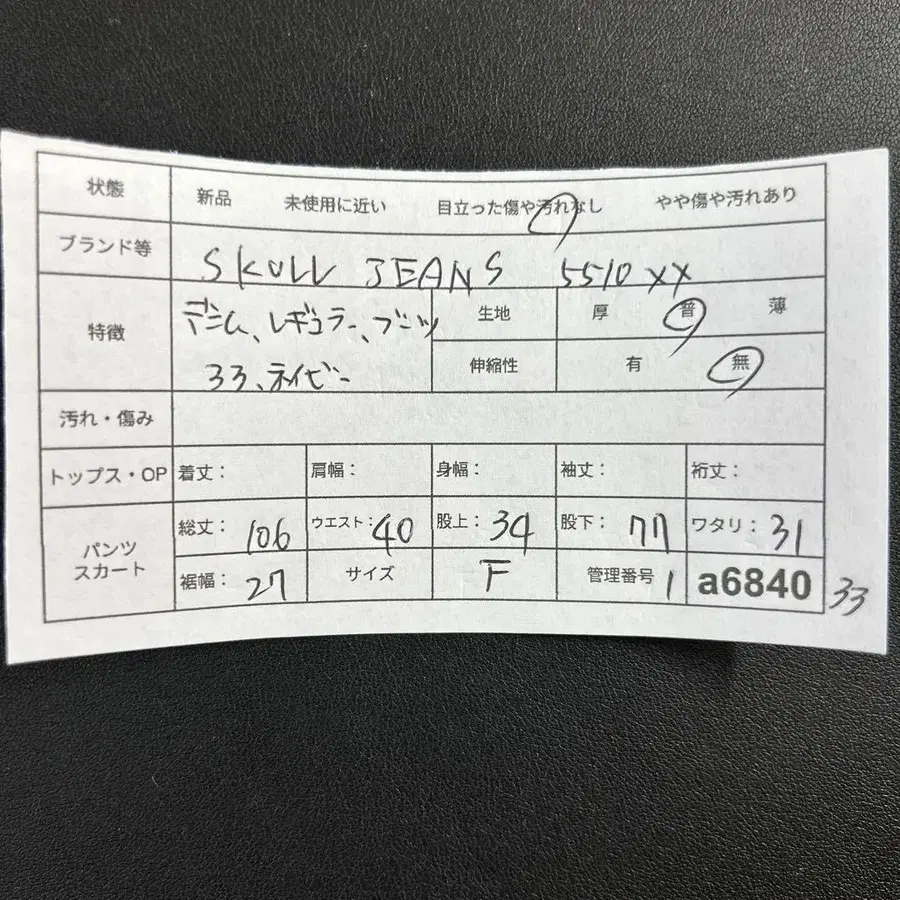 状態 新品 未使用に近い 目立った傷や汚れなし やや傷や汚れあり
ブランド等 SKULL JEANS 5510 XX
特徴 デニム、レギュラー、ブーツ 生地 厚 普 薄
33、ネイビー 伸縮性 有 無
汚れ・傷み
トップス・OP 着丈： 肩幅： 身幅： 袖丈： 裄丈：
パンツ スカート 総丈： 106 ウエスト： 40 股上： 34 股下： 77 ワタリ： 31
裾幅： 27 サイズ F 管理番号 1 a6840 33